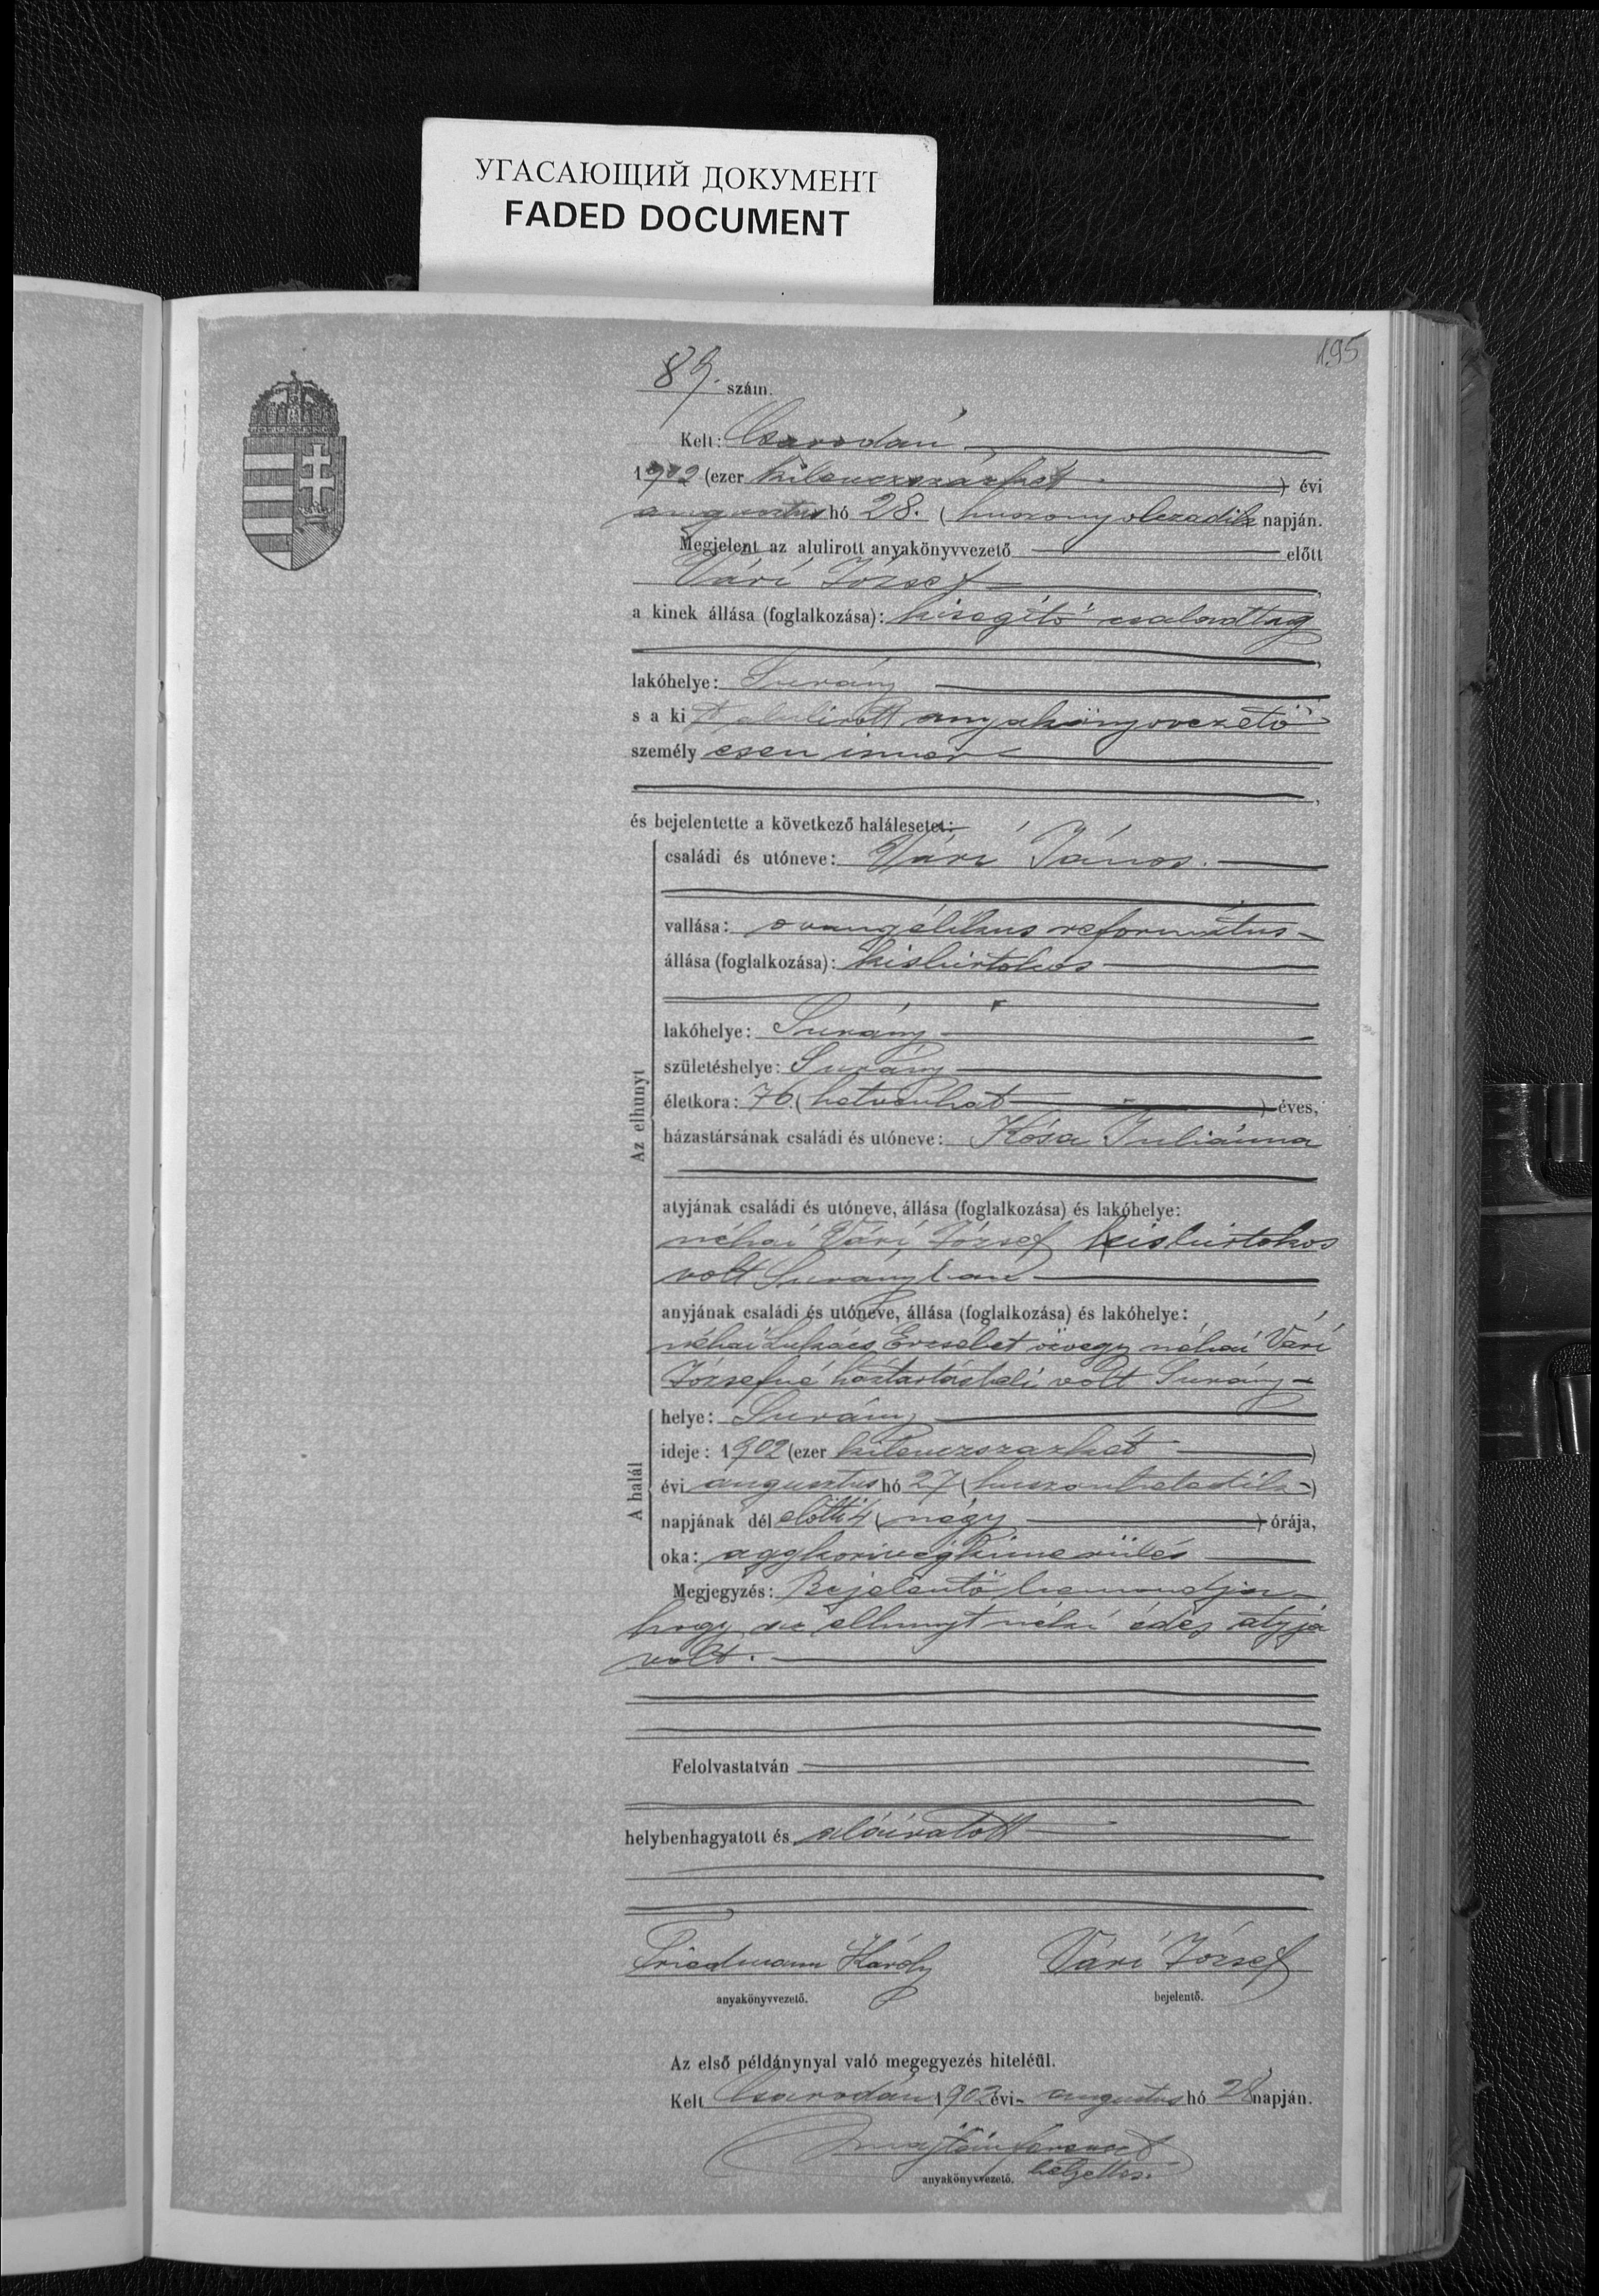 УГАСАЮЩИЙ ДОКУМЕНТ
FADED DOCUMENT
195
89. szám.
Kelt: Csarodán
1902 (ezer kilenczszázkét) évi
augusztus hó 28. (huszonyolczadik napján.
Megjelent az alulirott anyakönyvvezető előtt
Vári József,
a kinek állása (foglalkozása): kisegitő családtag,
lakóhelye: Surány
s a kit alulirott anyakönyvvezető
személyesen ismer,
és bejelentette a következő halálesetet:
Az elhunyt
családi és utóneve: Vári János.
vallása: evangélikus református
állása (foglalkozása): kisbirtokos
lakóhelye: Surány
születéshelye: Surány
életkora: 76 (hetvenhat) éves,
házastársának családi és utóneve: Kósa Juliánna
atyjának családi és utóneve, állása (foglalkozása) és lakóhelye:
néhai Vári József kisbirtokos
volt Surányban
anyjának családi és utóneve, állása (foglalkozása) és lakóhelye:
néhai Lukács Erzsébet özvegy néhai Vári
Józsefné háztartásbeli volt Surány
A halál
helye: Surány
ideje: 1902 (ezer kilenczszázkét)
évi augusztus hó 27 (huszonhetedik)
napjának dél előtti 4 (négy) órája,
oka: aggkori végkimerülés
Megjegyzés: Bejelentő bemondja
hogy az elhunyt néki édes atyja
volt.
Felolvastatván
helybenhagyatott és aláiratott
Friedmann Károly Vári József
anyakönyvvezető. bejelentő.
Az első példánynyal való megegyezés hiteléül.
Kelt Csarodán 1902 évi augusztus hó 28 napján.
helyettes.
anyakönyvvezető.